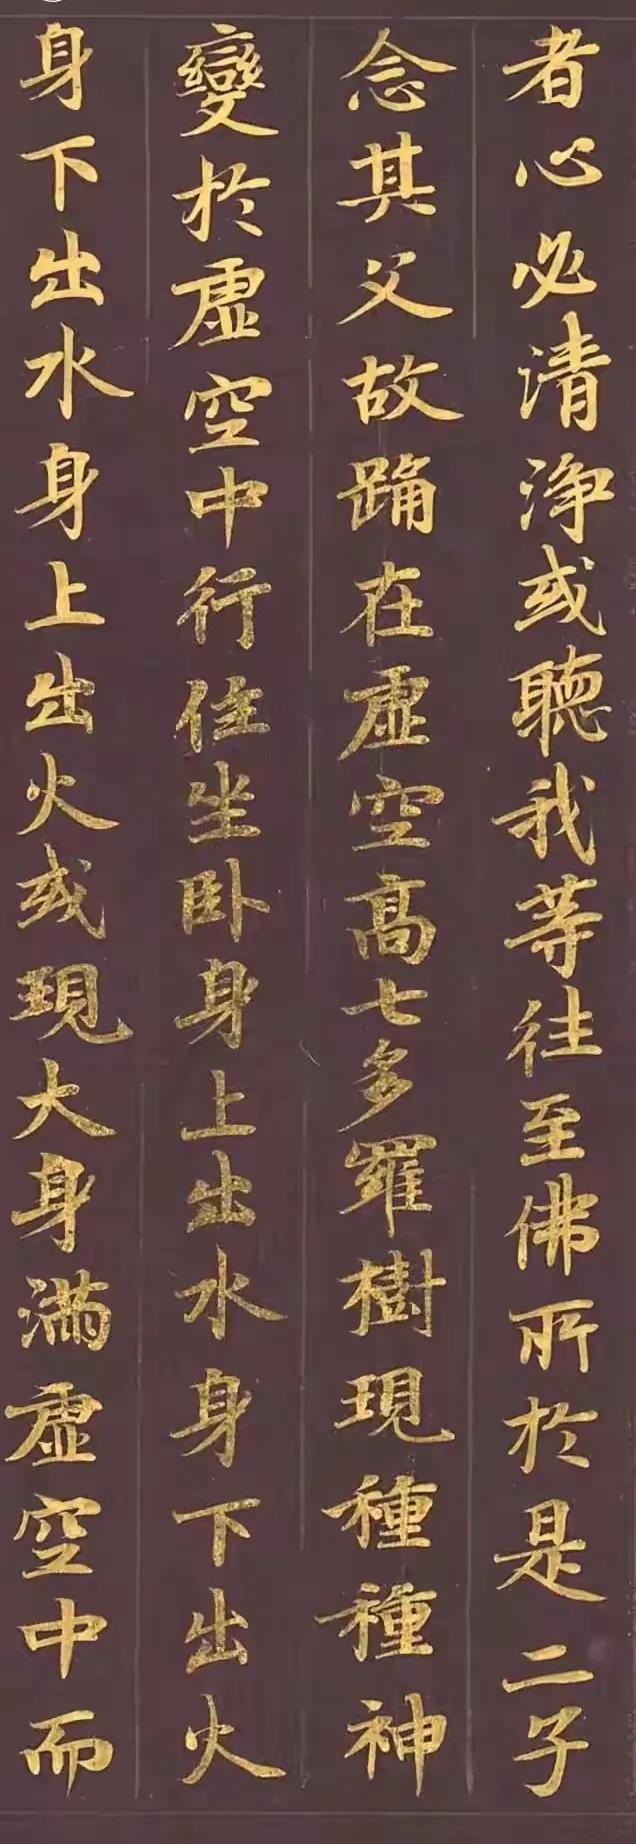 者心必清淨或聽我等往至佛所於是二子
念其父故踊在虛空高七多羅樹現種種神
變於虛空中行住坐臥身上出水身下出火
身下出水身上出火或現大身滿虛空中而